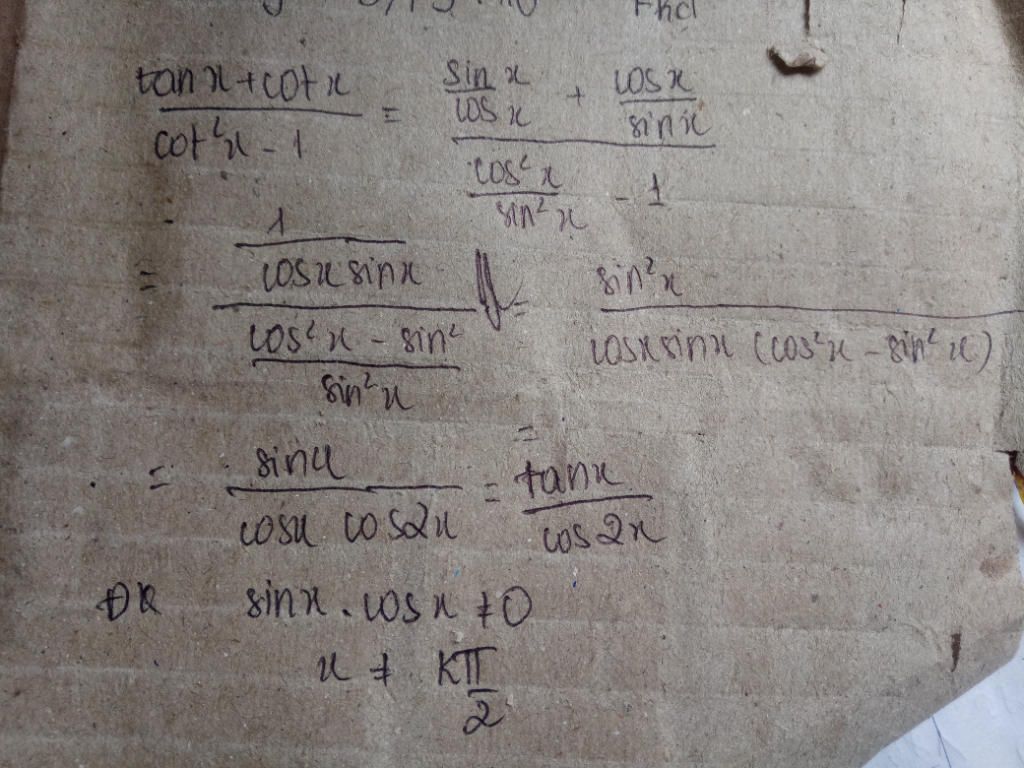 tan x + cot x / cot²x - 1 = (sin x / cos x + cos x / sin x) / (cos²x / sin²x - 1)
= (1 / cos x sin x) / (cos²x - sin² / sin²x) = sin²x / cos x sin x (cos²x - sin²x)
=
= sin x / cos x cos 2x = tan x / cos 2x
ĐK sin x . cos x ≠ 0
x ≠ Kπ / 2